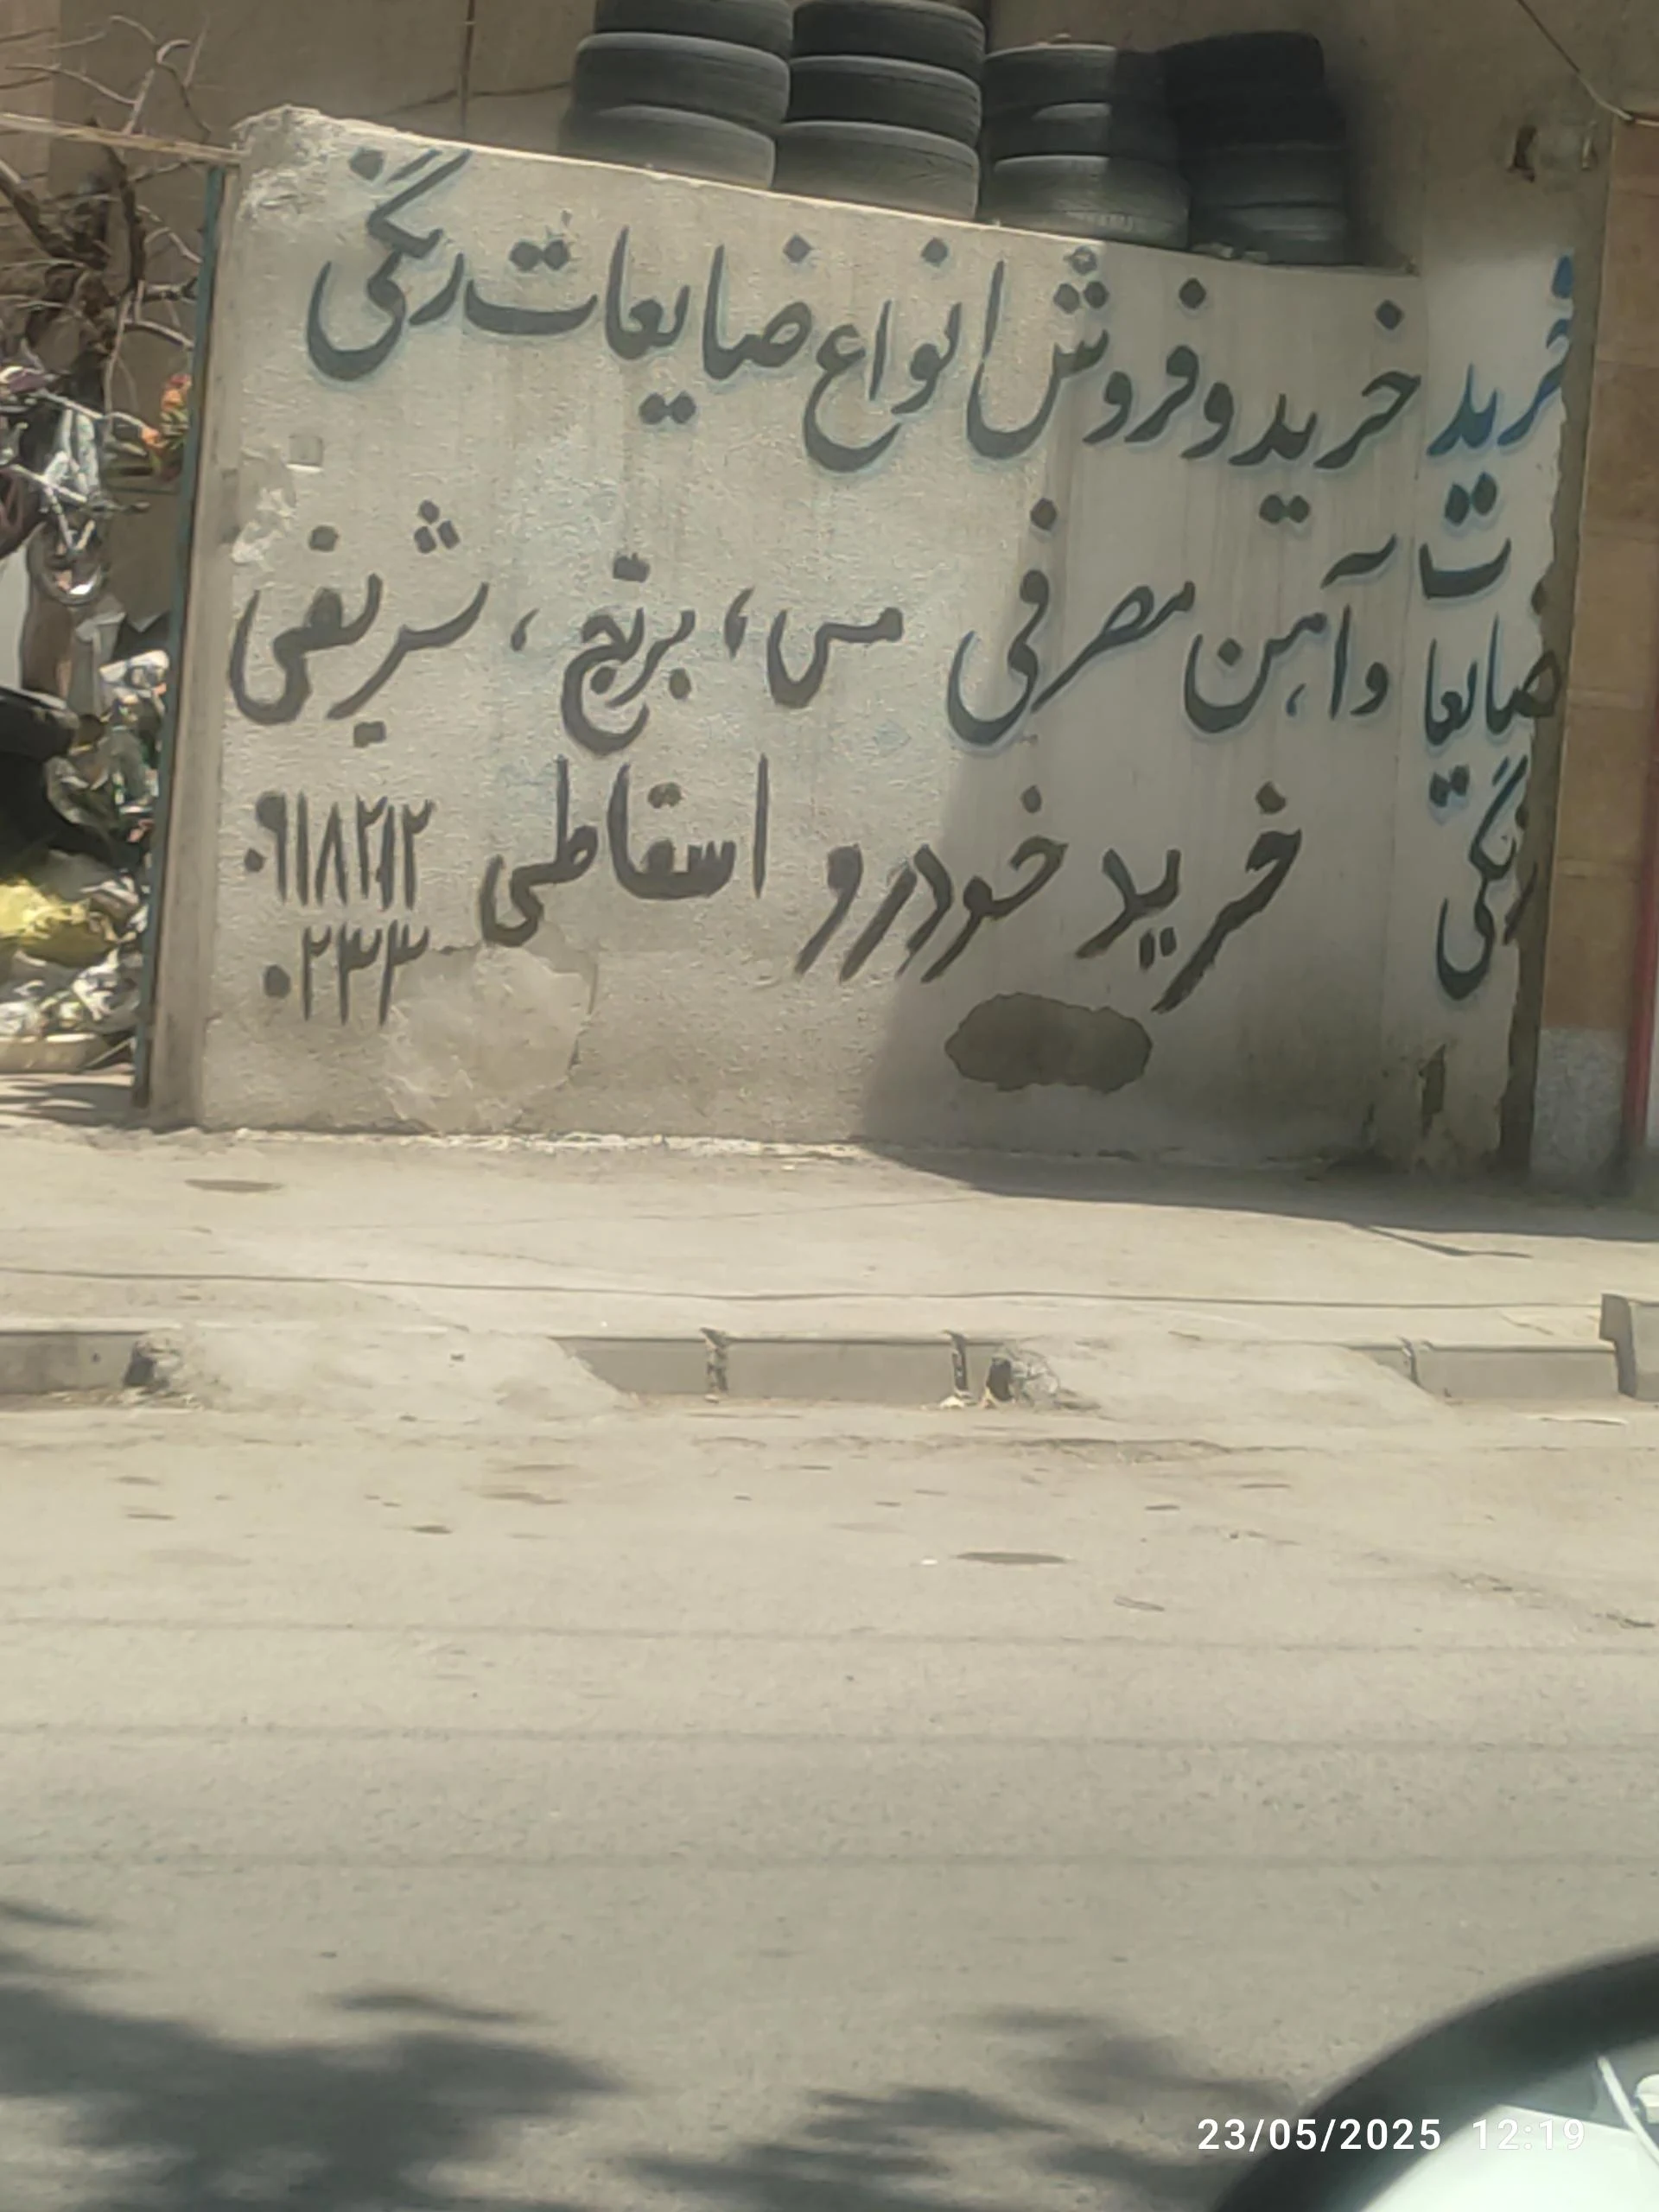 خرید و فروش انواع ضایعات رنگی
و آهن مصرفی مس، برنج، شریفی
خرید خودرو اسقاطی
۰۹۱۸۲۱۲
۰۲۳۳
خرید
ضایعات
رنگی
23/05/2025 12:19